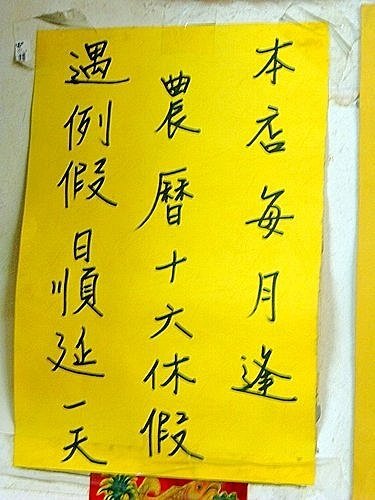 本店每月逢
農曆十六休假
遇例假日順延一天